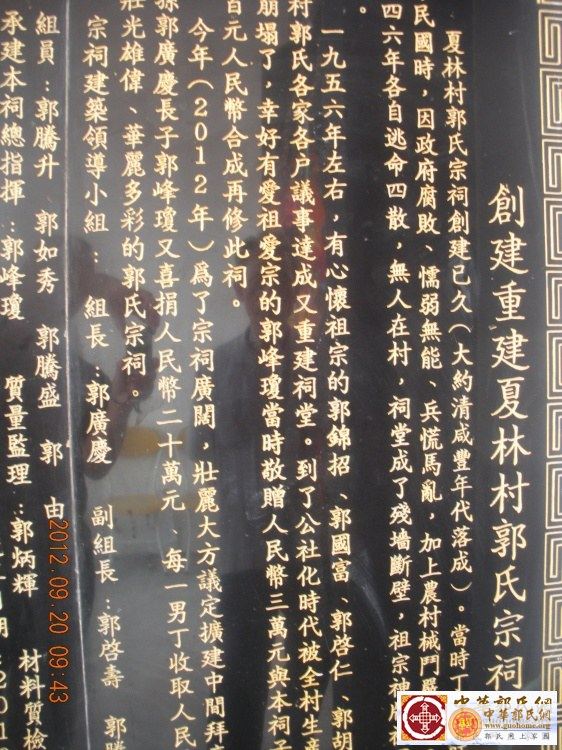 創建重建夏林村郭氏宗祠
夏林村郭氏宗祠創建已久(大約清咸豐年代落成)。當時
民國時,因政府腐敗、懦弱無能、兵慌馬亂,加上農村械鬥
四六年各自逃命四散,無人在村,祠堂成了殘墻斷壁,祖宗神
一九五六年左右,有心懷祖宗的郭錦招、郭國富、郭啓仁、郭胡
村郭氏各家各户議事達成又重建祠堂。到了公社化時代被全村生産
崩塌了,幸好有愛祖愛宗的郭峰瓊當時敬贈人民幣三萬元與本祠
百元人民幣合成再修此祠。
今年(2012年)爲了宗祠廣闊,壯麗大方議定擴建中間拜
孫郭廣慶長子郭峰瓊又喜捐人民幣二十萬元、每一男丁收取人民
莊光雄偉、華麗多彩的郭氏宗祠。
宗祠建築領導小組:組長:郭廣慶 副組長:郭啓壽 郭
組員:郭騰升 郭如秀 郭騰盛 郭由
承建本祠總指揮:郭峰瓊 質量監理:郭炳輝 材料質檢
2012.09.20 09:43
中華郭氏網
中華郭氏網
www.guohome.org
郭氏網上家園